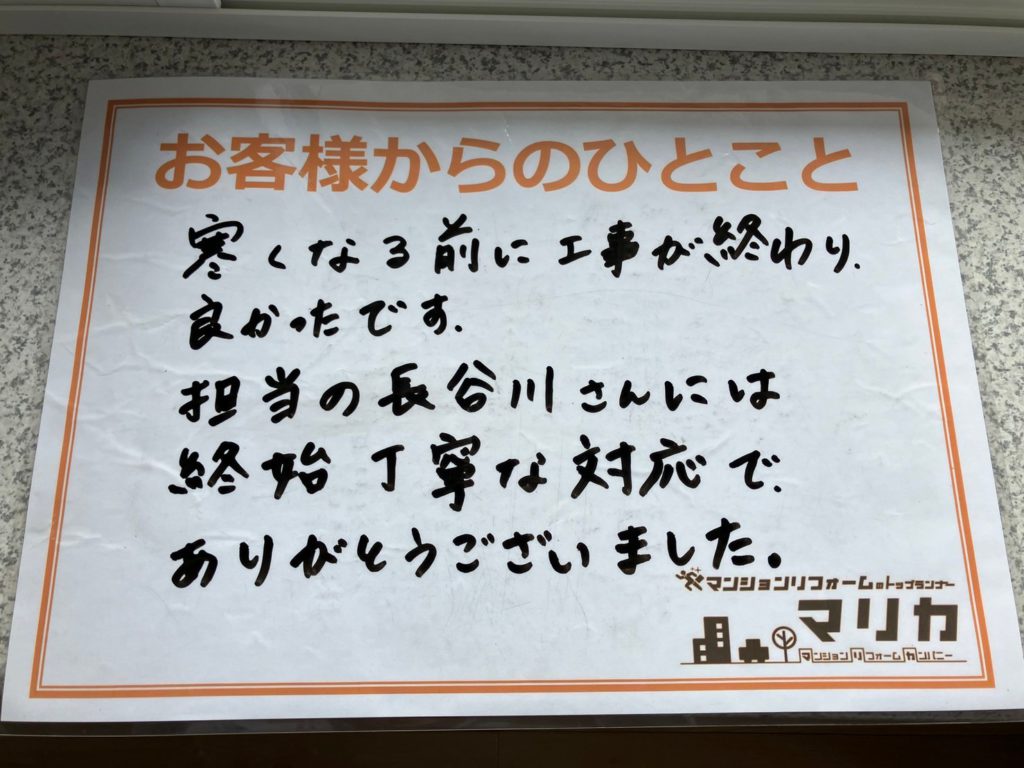 お客様からのひとこと
寒くなる前に工事が終わり、
良かったです。
担当の長谷川さんには
終始丁寧な対応で、
ありがとうございました。
マンションリフォームのトップランナー
マリカ
マンションリフォームカンパニー